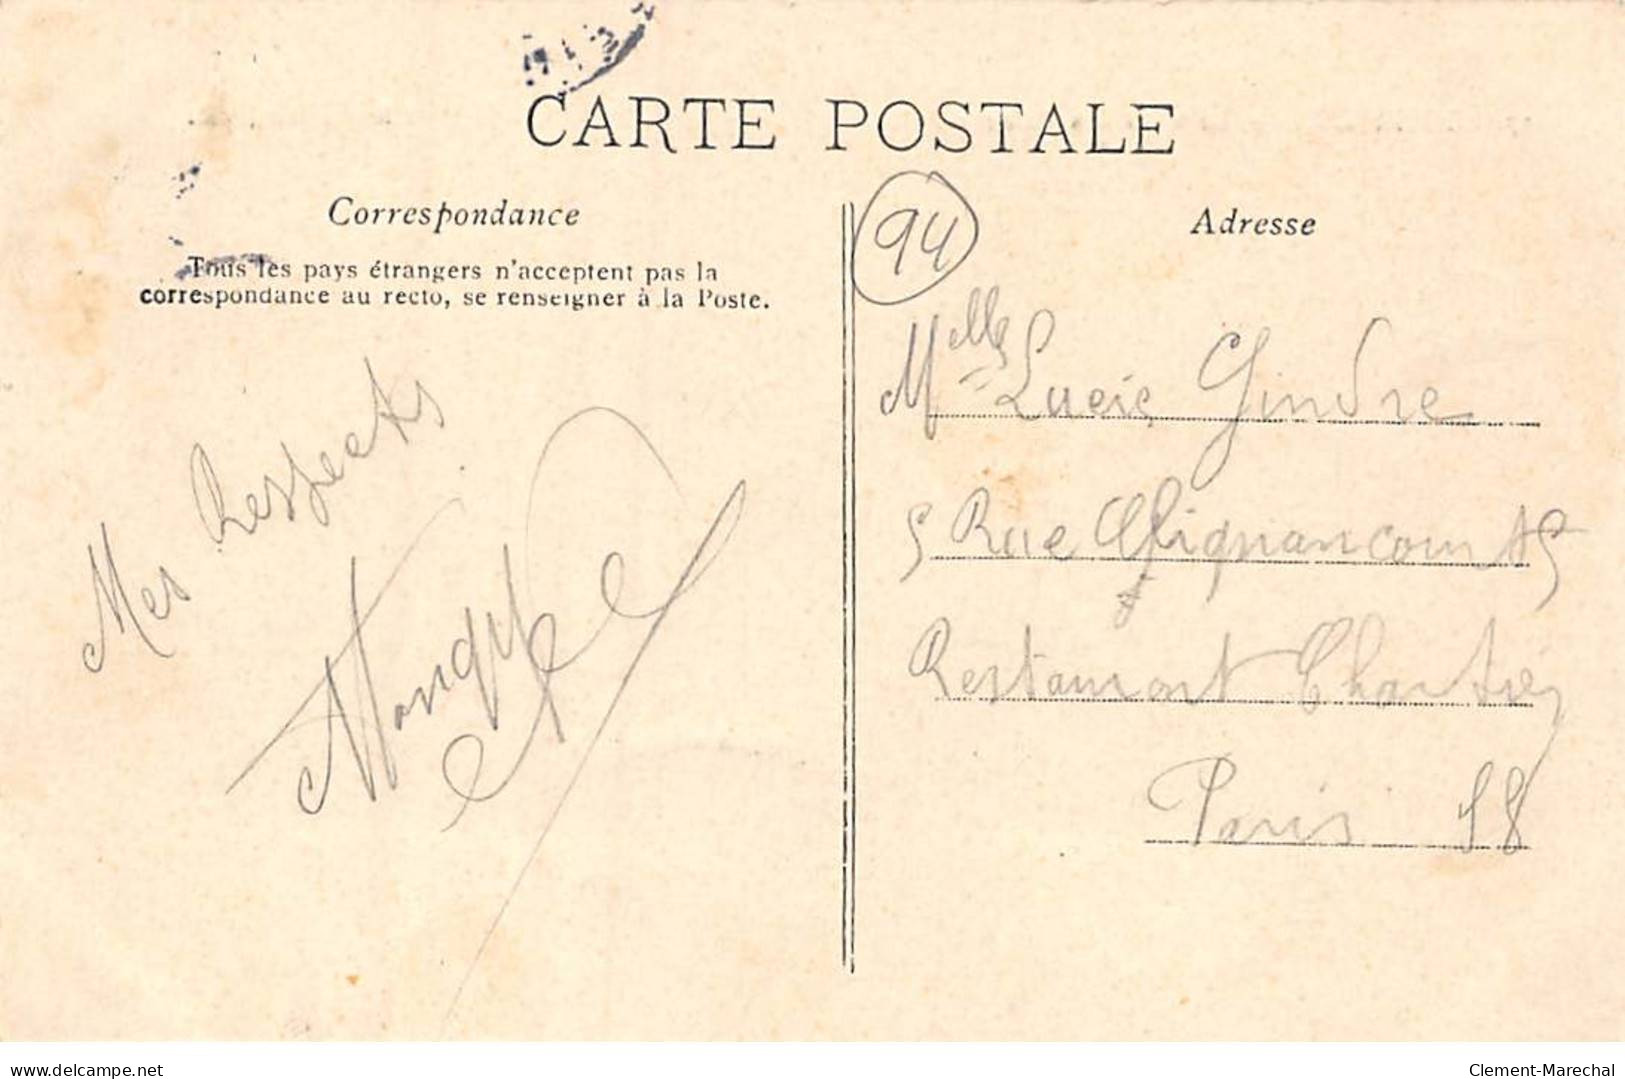 CARTE POSTALE
Correspondance
Tous les pays étrangers n'acceptent pas la
correspondance au recto, se renseigner à la Poste.
Mes Respects
94
Adresse
Melle Lucie Gindre
5 Rue Clignancourt 5
Restaurant Chartier
Paris 18
www.delcampe.net
Clement-Marechal